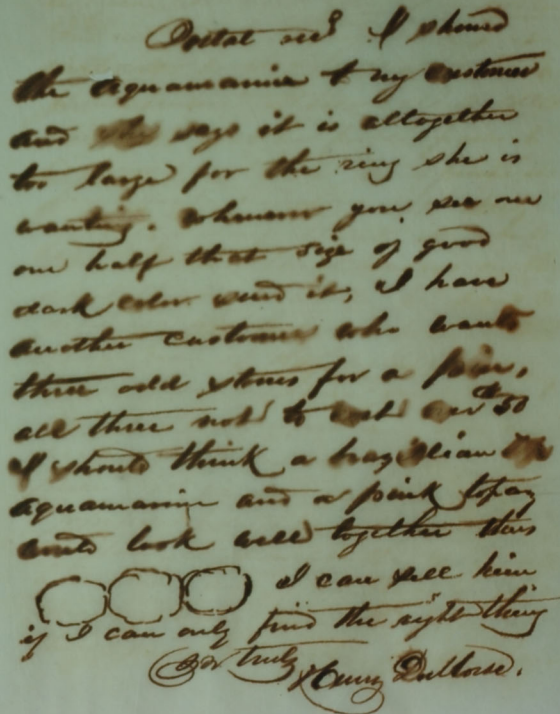 Postal recd I showed
the aquamarine to my customer
and she says it is altogether
too large for the ring she is
wanting. Whenever you see one
one half that size of good
dark color send it, I have
another customer who wants
three odd stones for a pin,
all three not to cost over $50
I should think a brazilian
aquamarine and a pink topaz
would look well together thus
I can sell him
if I can only find the right thing
truly Henry